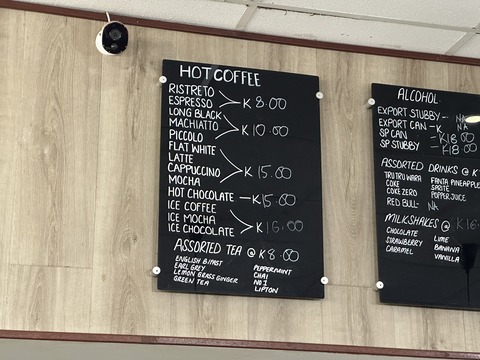 HOT COFFEE
RISTRETO
ESPRESSO K 8.00
LONG BLACK
MACHIATTO K 10.00
PICCOLO
FLAT WHITE
LATTE
CAPPUCCINO K 15.00
MOCHA
HOT CHOCOLATE - K 15.00
ICE COFFEE
ICE MOCHA K 16.00
ICE CHOCOLATE
ASSORTED TEA @ K 8.00
ENGLISH B/FAST PEPPERMINT
EARL GREY CHAI
LEMON GRASS GINGER NO 1
GREEN TEA LIPTON
ALCOHOL
EXPORT STUBBY - NA
EXPORT CAN - K NA
SP CAN - K18.00
SP STUBBY - K18.00
ASSORTED DRINKS @ K
TRU TRU WARA FANTA PINEAPPLE
COKE SPRITE
COKE ZERO POPPER JUICE
RED BULL - NA
MILKSHAKES @ K16
CHOCOLATE LIME
STRAWBERRY BANANA
CARAMEL VANILLA